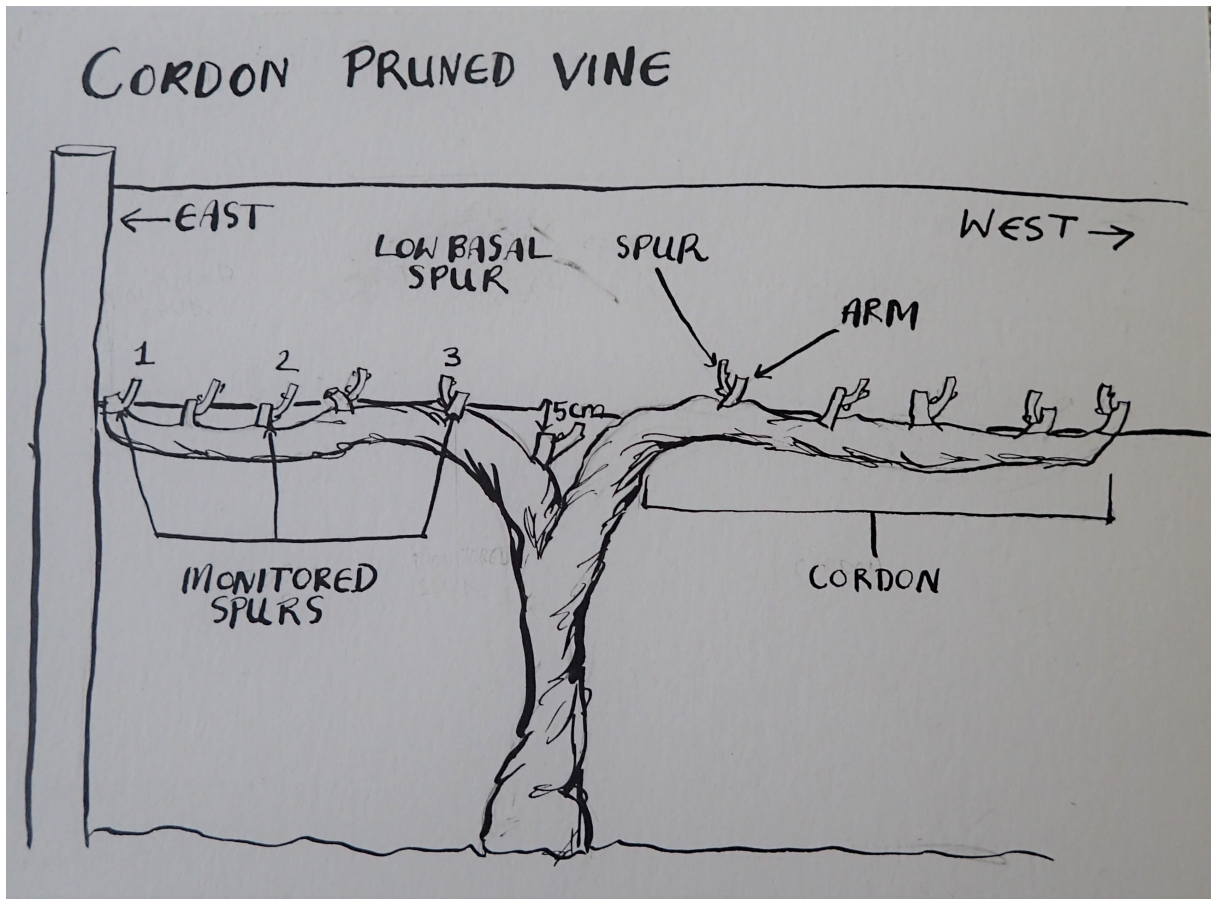 CORDON PRUNED VINE
←EAST
WEST→
LOW BASAL
SPUR
SPUR
ARM
1
2
3
5cm
MONITORED
SPURS
CORDON